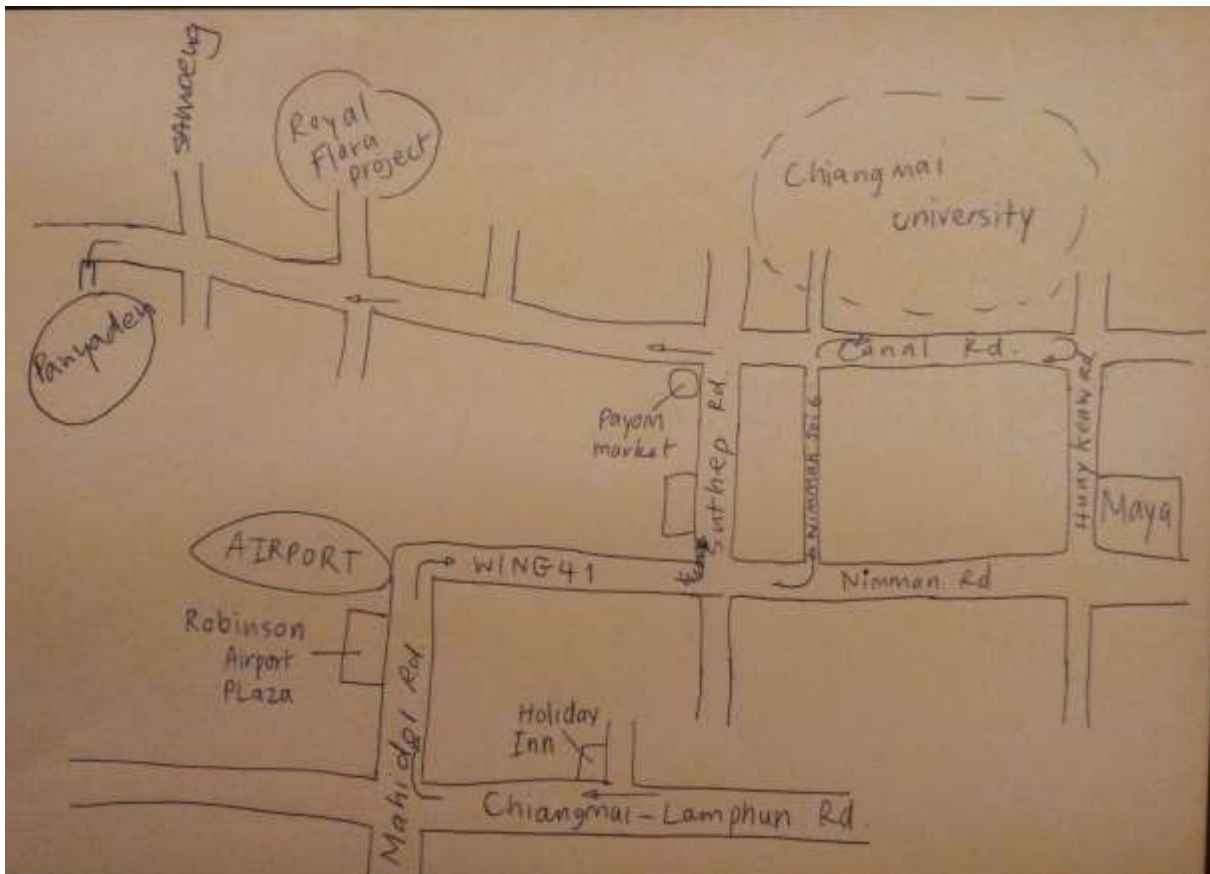 SAMOEUG
Royal
Flora
project
Chiangmai
university
Panyaden
Canal Rd.
Payom
market
Suthep Rd
Nimman Soi 6
Huay Keaw Rd
Maya
AIRPORT
WING41
Nimman Rd
Robinson
Airport
PLaza
Mahidol Rd.
Holiday
Inn
Chiangmai-Lamphun Rd.